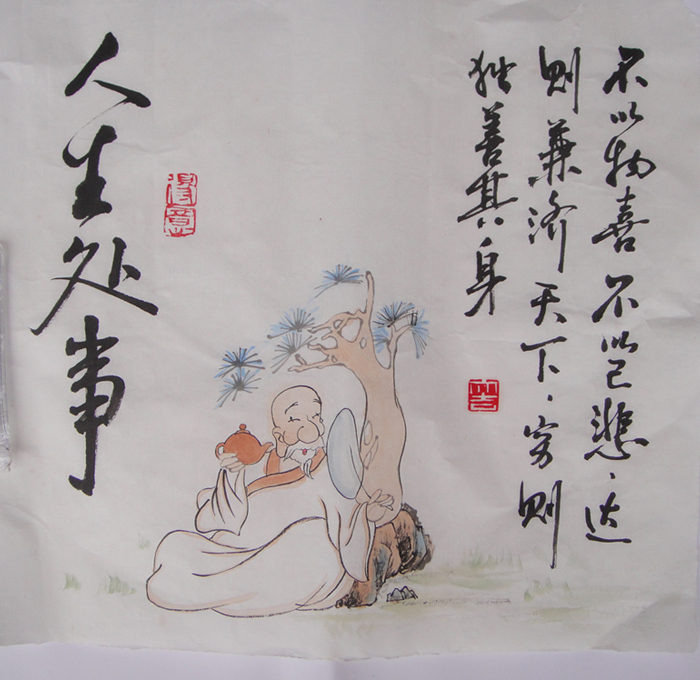 不以物喜不以己悲、达
则兼济天下、穷则
独善其身
人生处事
得意